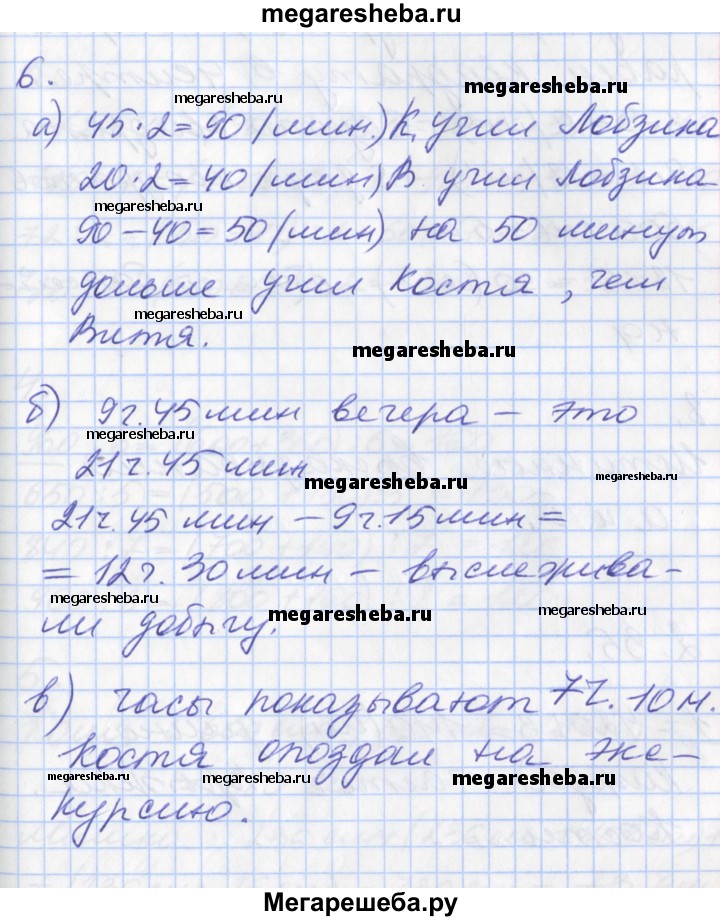 megaresheba.ru
6.
megaresheba.ru megaresheba.ru
а) 45·2=90(мин.) К. учил Лобзика
20·2=40(мин) В. учил Лобзика
megaresheba.ru
90-40=50(мин) на 50 минут
дольше учил Костя, чем
megaresheba.ru
Витя.
megaresheba.ru
б) 9ч. 45 мин вечера - это
megaresheba.ru
21ч. 45 мин
megaresheba.ru megaresheba.ru
21ч. 45 мин - 9ч. 15 мин =
= 12ч. 30 мин - выслежива-
megaresheba.ru megaresheba.ru megaresheba.ru
ли добычу.
в) часы показывают 7ч. 10 м.
Костя опоздал на экс-
megaresheba.ru megaresheba.ru megaresheba.ru
курсию.
Мегарешеба.ру